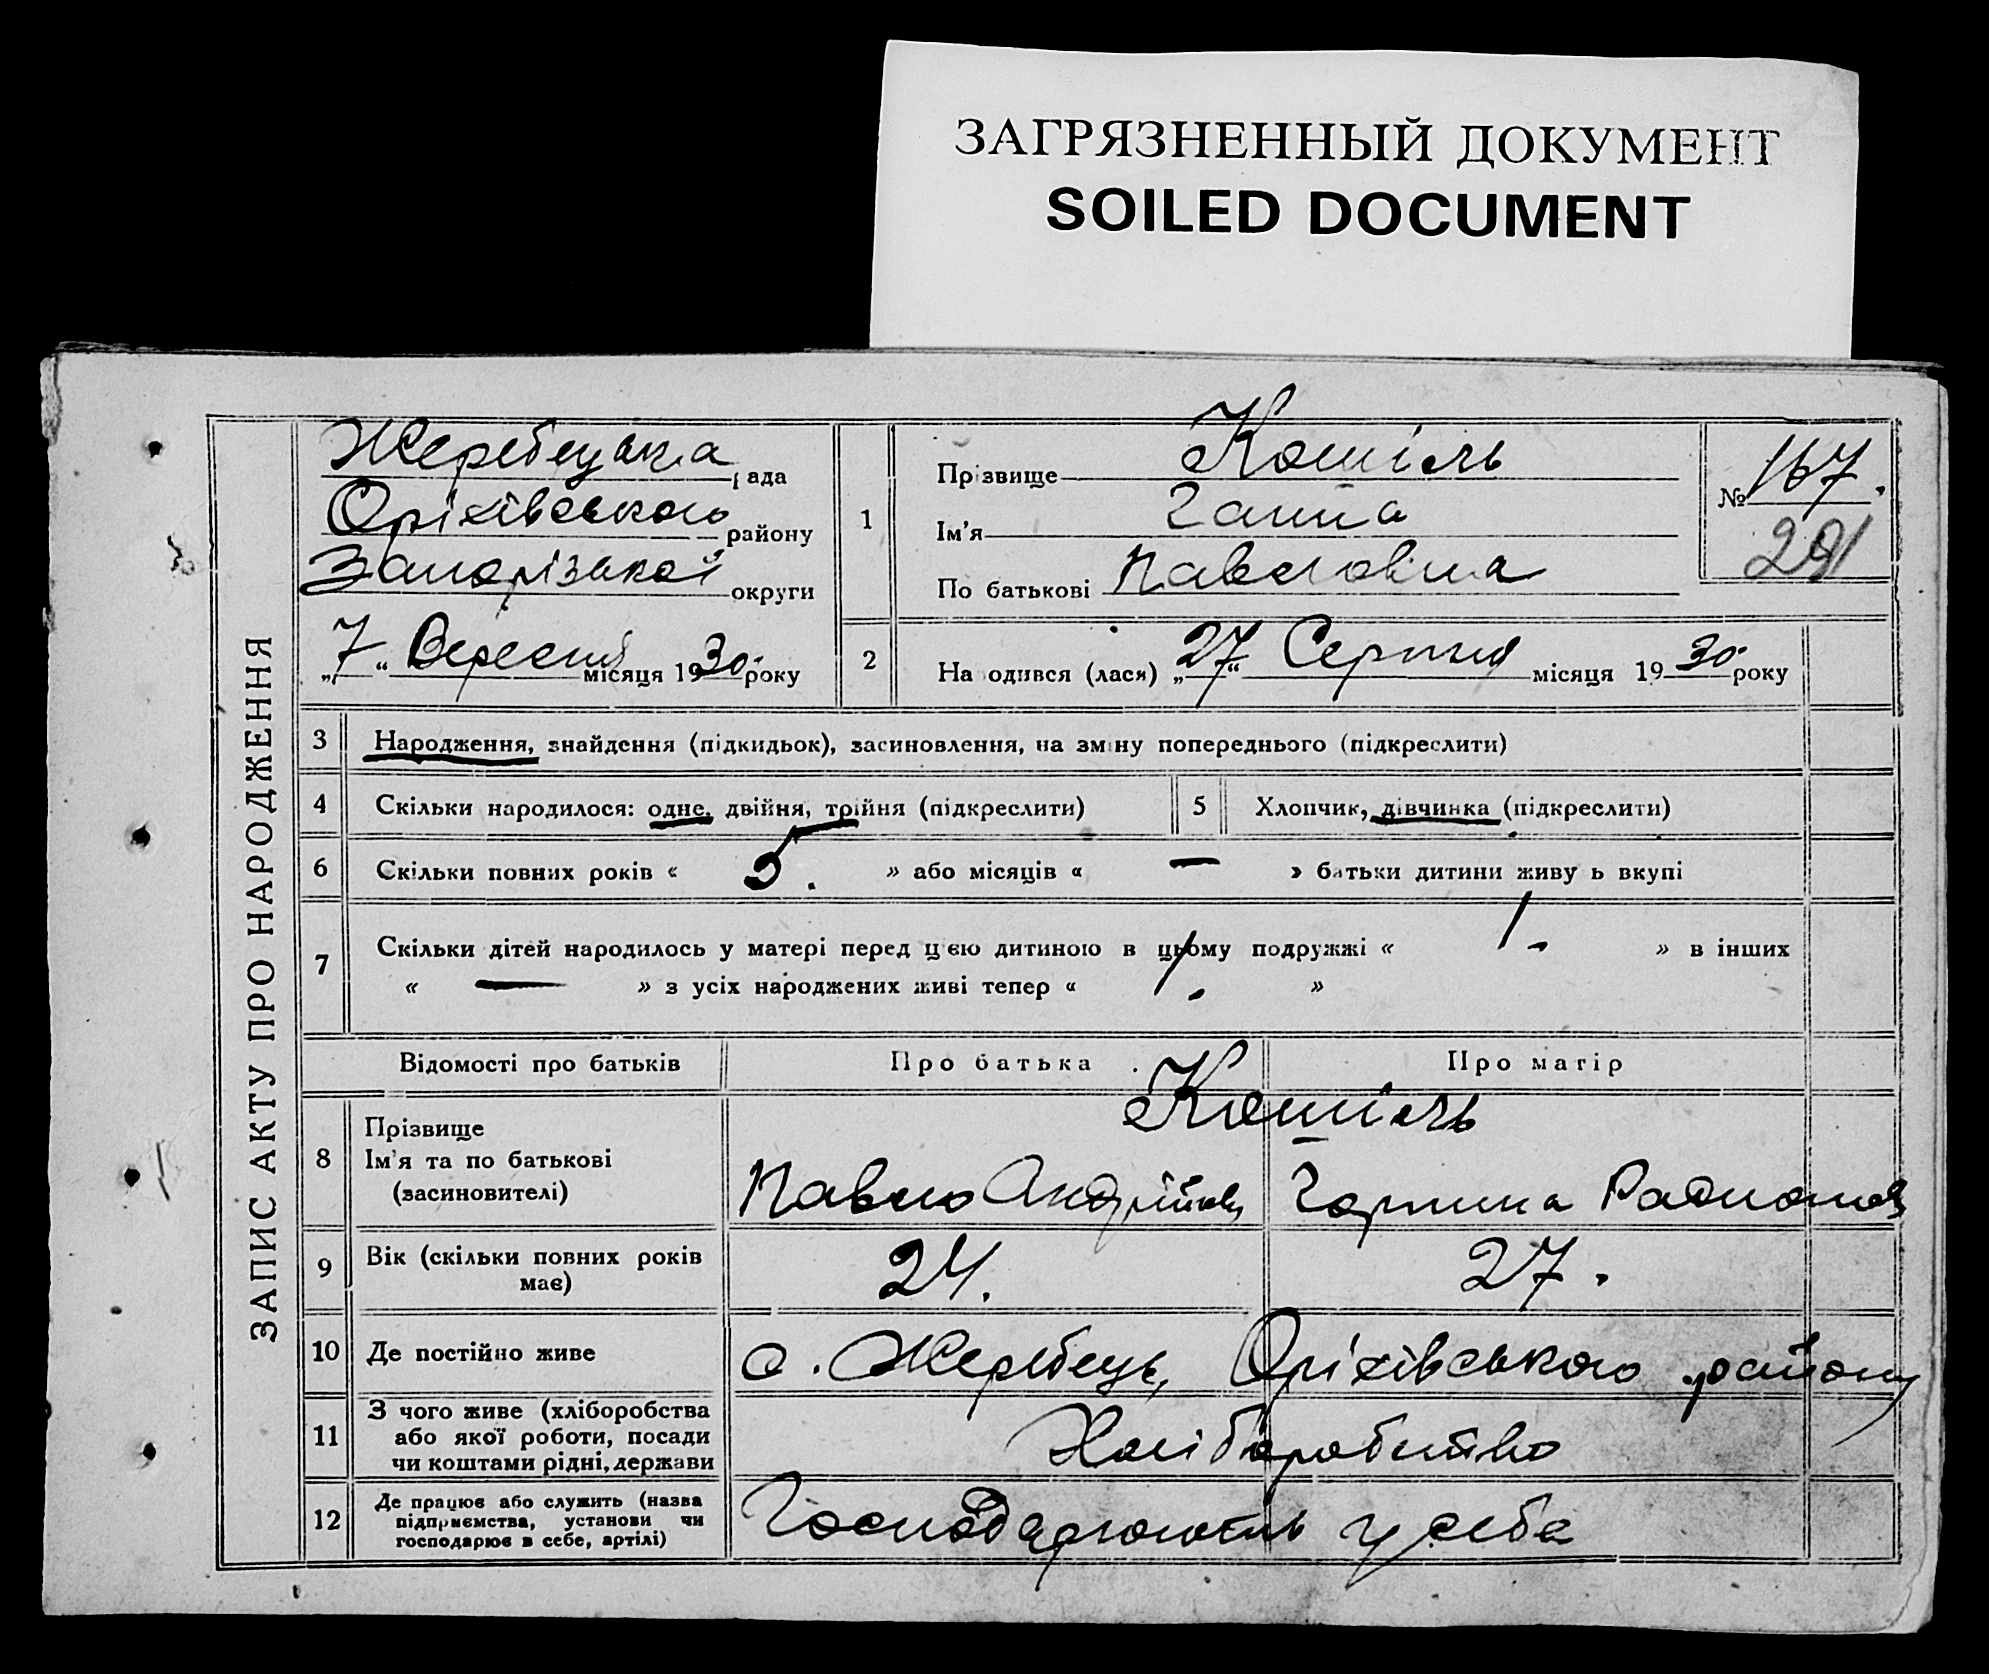 ЗАГРЯЗНЕННЫЙ ДОКУМЕНТ
SOILED DOCUMENT
ЗАПИС АКТУ ПРО НАРОДЖЕННЯ
Жеребецька рада
Оріхівського району
Запорізької округи
„7“ Вересня місяця 1930 року
1
Прізвище Кошіль
Ім'я Ганна
По батькові Павловна
№ 167.
291
2 Народився (лася) „27“ Серпня місяця 1930 року
3 Народження, знайдення (підкидьок), засиновлення, на зміну попереднього (підкреслити)
4 Скільки народилося: одне, двійня, трійня (підкреслити)
5 Хлопчик, дівчинка (підкреслити)
6 Скільки повних років « 5. » або місяців « — » батьки дитини живуть вкупі
7 Скільки дітей народилось у матері перед цією дитиною в цьому подружжі « 1. » в інших
« — » з усіх народжених живі тепер « 1. »
Відомості про батьків Про батька Про матір
8 Прізвище
Ім'я та по батькові
(засиновителі)
Кошіль
Павло Андрійов Горпина Радионов
9 Вік (скільки повних років
має)
24. 27.
10 Де постійно живе с. Жеребець, Оріхівського району
11 З чого живе (хліборобства
або якої роботи, посади
чи коштами рідні, держави
Хліборобство
12 Де працює або служить (назва
підприємства, установи чи
господарює в себе, артілі)
Господарюють у себе